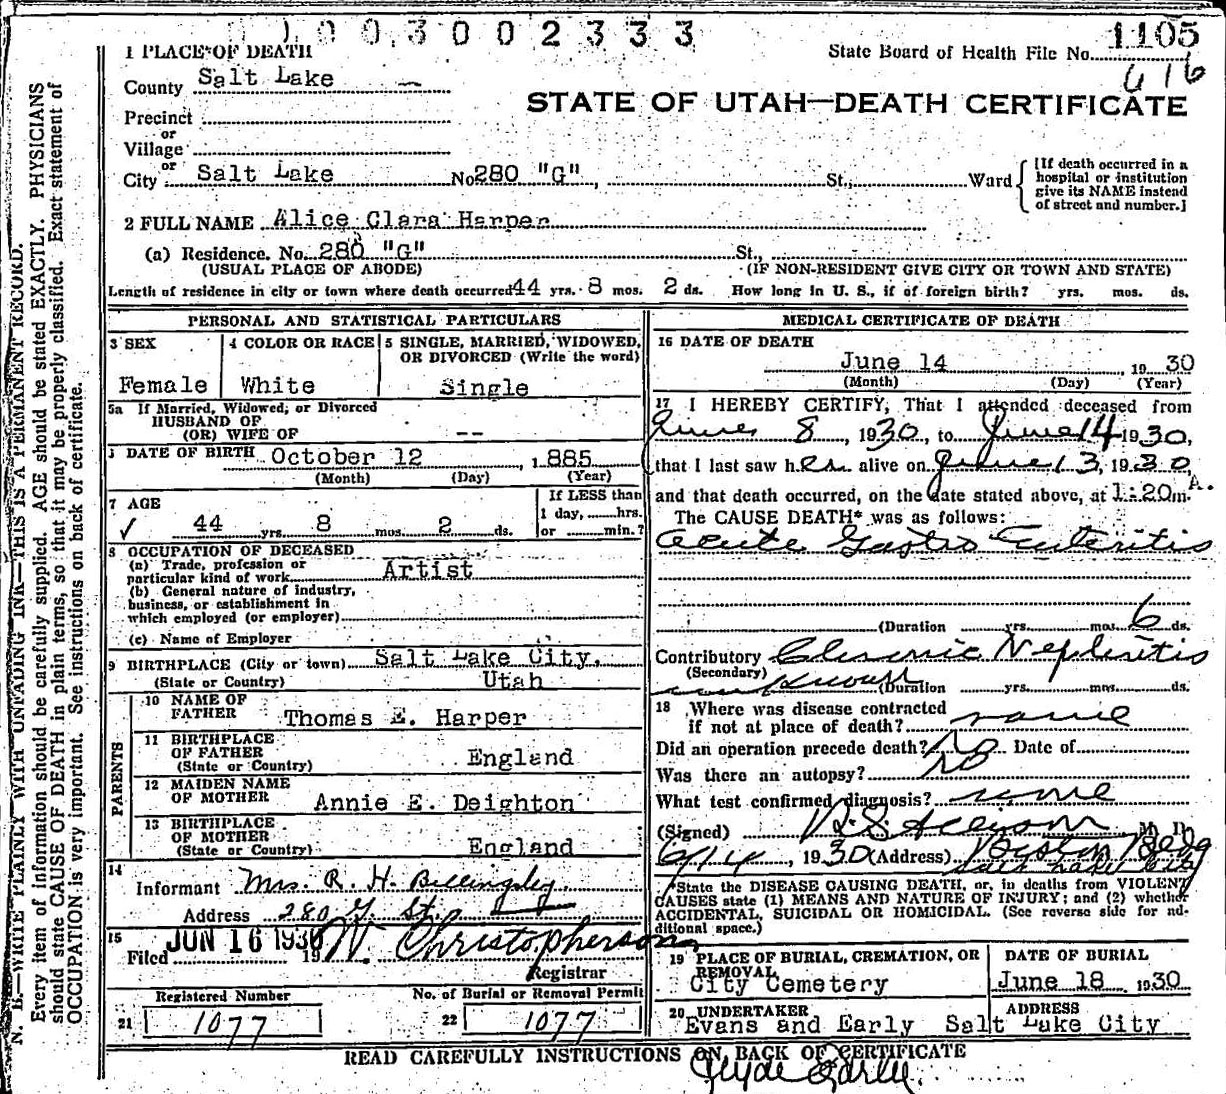 1003002333
1 PLACE OF DEATH
State Board of Health File No. 1105
616
County Salt Lake —
STATE OF UTAH—DEATH CERTIFICATE
Precinct
or
Village
or
City Salt Lake No 280 "G", St., Ward
[If death occurred in a
hospital or institution
give its NAME instend
of street and number.]
2 FULL NAME Alice Clara Harper
(a) Residence. No. 280 "G" St.,
(USUAL PLACE OF ABODE) (IF NON-RESIDENT GIVE CITY OR TOWN AND STATE)
Length of residence in city or town where death occurred 44 yrs. 8 mos. 2 ds. How long in U. S., if of foreign birth? yrs. mos. ds.
PERSONAL AND STATISTICAL PARTICULARS
3 SEX
Female
4 COLOR OR RACE
White
5 SINGLE, MARRIED, WIDOWED,
OR DIVORCED (Write the word)
Single
5a If Married, Widowed, or Divorced
HUSBAND OF
(OR) WIFE OF --
DATE OF BIRTH October 12, 1885
(Month) (Day) (Year)
7 AGE
✓ 44 yrs. 8 mos. 2 ds.
If LESS than
1 day, ......hrs.
or ......min.?
8 OCCUPATION OF DECEASED
(a) Trade, profession or
particular kind of work Artist
(b) General nature of industry,
business, or establishment in
which employed (or employer)
(c) Name of Employer
9 BIRTHPLACE (City or town) Salt Lake City,
(State or Country) Utah
PARENTS
10 NAME OF
FATHER Thomas E. Harper
11 BIRTHPLACE
OF FATHER England
(State or Country)
12 MAIDEN NAME
OF MOTHER Annie E. Deighton
13 BIRTHPLACE
OF MOTHER
(State or Country) England
14
Informant Mrs. R. H. Billingsley
Address 280 G. St.
15 JUN 16 1930
Filed 19 W. Christopherson
Registrar
Registered Number No. of Burial or Removal Permit
21 1077 22 1077
MEDICAL CERTIFICATE OF DEATH
16 DATE OF DEATH
June 14, 1930
(Month) (Day) (Year)
17 I HEREBY CERTIFY, That I attended deceased from
June 8, 1930, to June 14 1930,
that I last saw her alive on June 13, 1930,
and that death occurred, on the date stated above, at 1:20 A.m.
The CAUSE DEATH* was as follows:
Acute Gastro Enteritis
(Duration yrs. mos. 6 ds.
Contributory Chronic Nephritis
(Secondary)
unknown (Duration yrs. mos. ds.
18 Where was disease contracted
if not at place of death? same
Did an operation precede death? No Date of
Was there an autopsy? No
What test confirmed diagnosis? none
(Signed) M. D.
6/14, 1930 (Address) Boston Bldg
Salt Lake City
*State the DISEASE CAUSING DEATH, or, in deaths from VIOLENT
CAUSES state (1) MEANS AND NATURE OF INJURY; and (2) whether
ACCIDENTAL, SUICIDAL OR HOMICIDAL. (See reverse side for ad-
ditional space.)
19 PLACE OF BURIAL, CREMATION, OR
REMOVAL
City Cemetery
DATE OF BURIAL
June 18 1930
20 UNDERTAKER ADDRESS
Evans and Early Salt Lake City
READ CAREFULLY INSTRUCTIONS ON BACK OF CERTIFICATE
Clyde Early
N. B.—WRITE PLAINLY WITH UNFADING INK—THIS IS A PERMANENT RECORD.
Every item of information should be carefully supplied. AGE should be stated EXACTLY. PHYSICIANS
should state CAUSE OF DEATH in plain terms, so that it may be properly classified. Exact statement of
OCCUPATION is very important. See instructions on back of certificate.